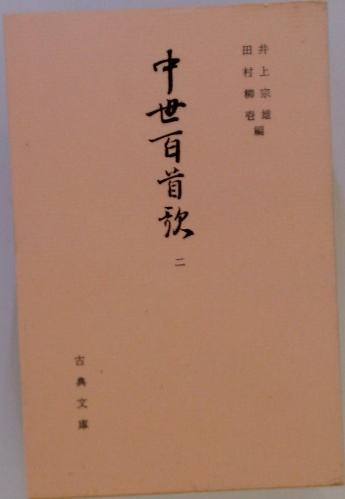 井上宗雄
田村柳壱
編
中世百首歌
二
古典文庫